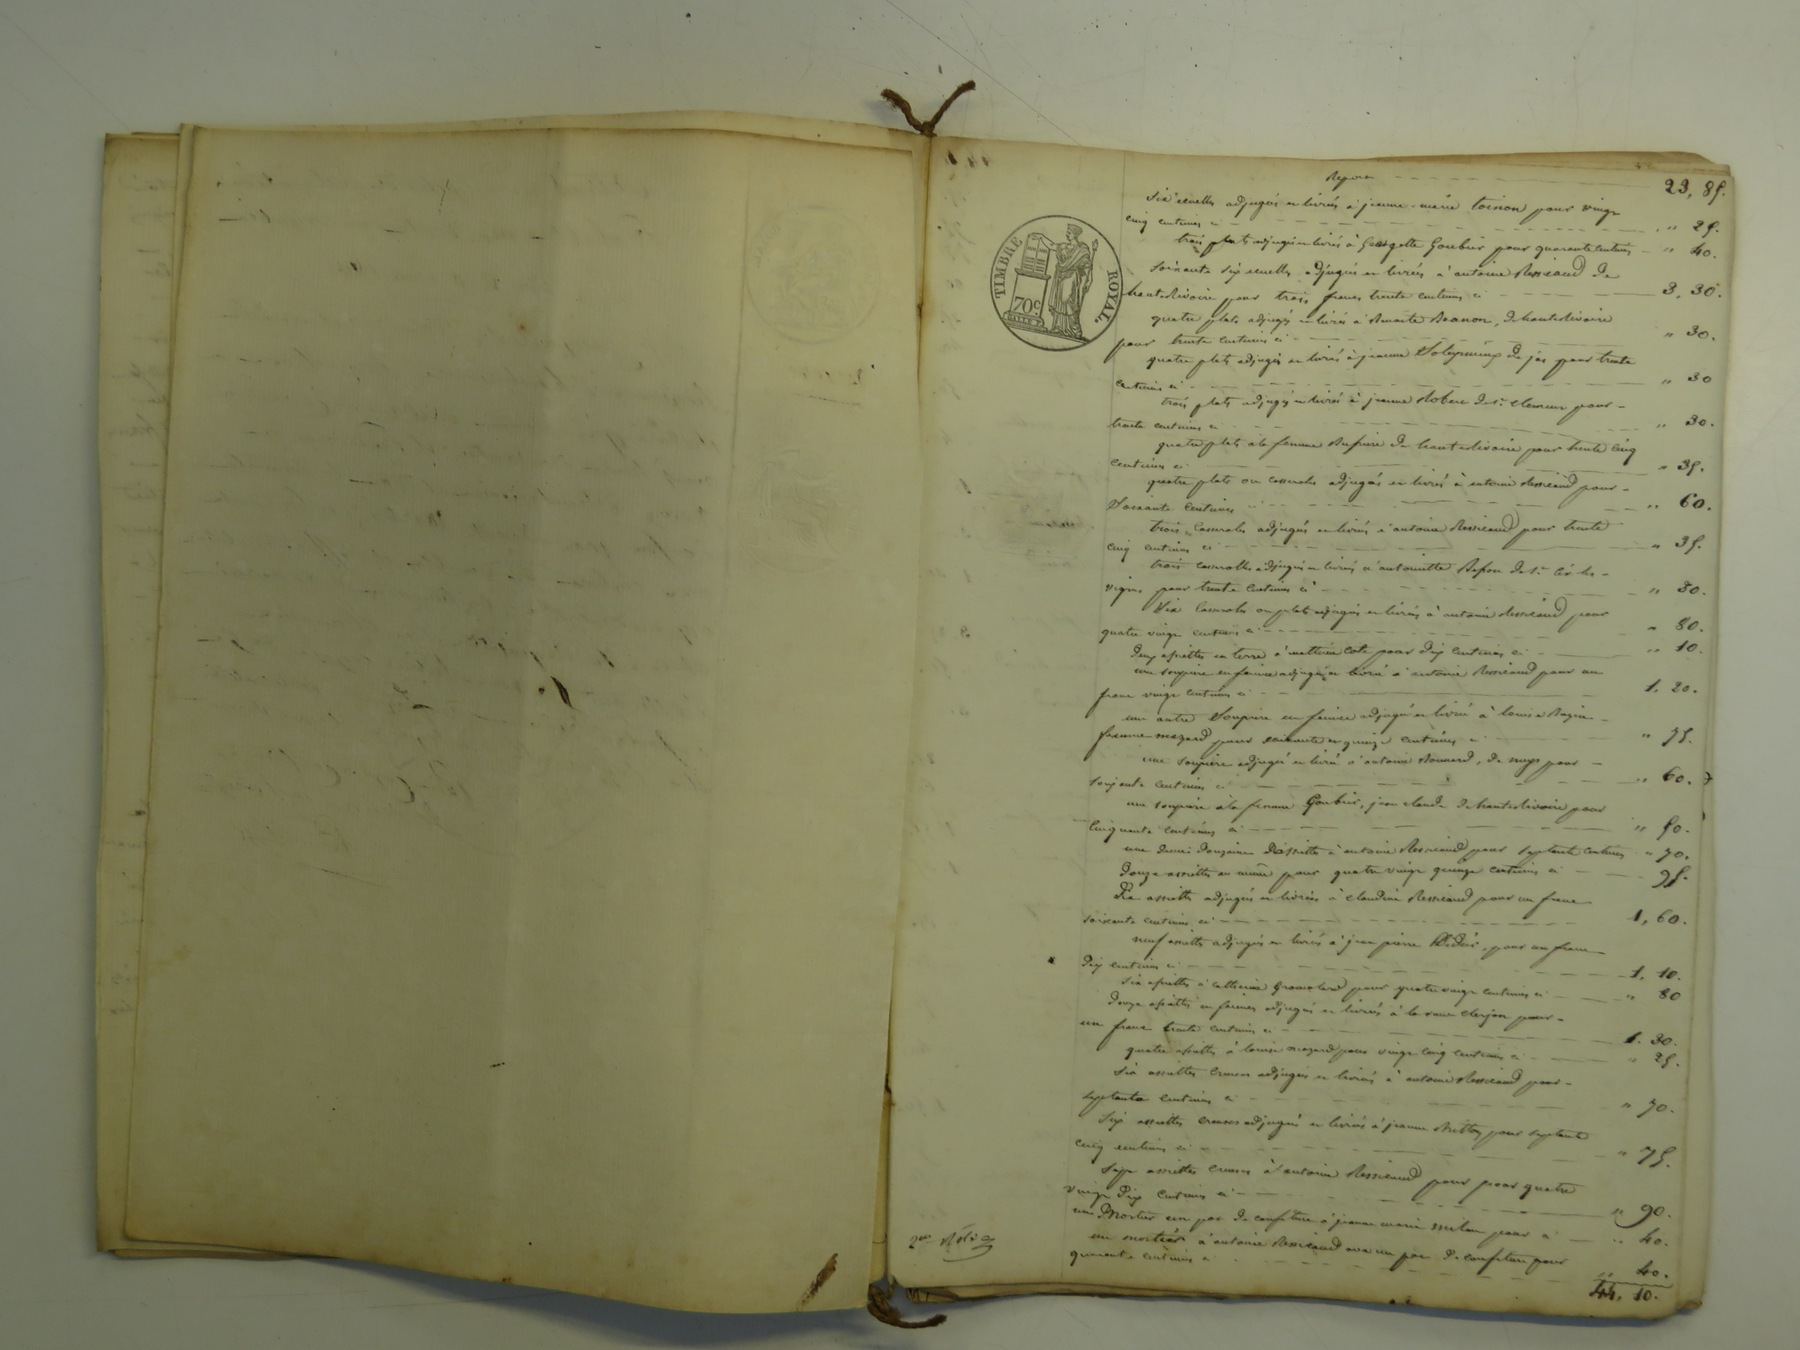 Report 23, 85.
TIMBRE ROYAL.
70c
Six ecuelles adjugés et livrés à jeanne-marie toinon pour vingt
cinq centimes ci " 25.
trois plats adjugés et livrés à Georgette Goubier pour quarante centimes " 40.
soixante six ecuelles adjugés et livrés à antoine Ressicaud de
hauterivoire pour trois francs trente centimes ci 3, 30.
quatre plats adjugés et livrés à Benoite de hauterivoire
pour trente centimes ci " 30.
quatre plats adjugés et livrés à jeanne de jas pour trente
centimes ci " 30
trois plats adjugés et livrés à jeanne Robert de st. clement pour
trente centimes ci " 30.
quatre plats a la femme de hauterivoire pour trente cinq
centimes ci " 35.
quatre plats ou casseroles adjugés et livrés à antoine Ressicaud pour
Soixante centimes " 60.
trois casseroles adjugés et livrés à antoine Ressicaud pour trente
cinq centimes ci " 35.
trois casserolles adjugés et livrés à antoinette de st. les
vignes pour trente centimes ci " 30.
Six Casseroles ou plats adjugés et livrés à antoine Ressicaud pour
quatre vingt centimes ci " 80.
deux assiettes en terre à mathieu cote pour dix centimes ci " 10.
une soupière en faience adjugée et livrée à antoine Ressicaud pour un
franc vingt centimes ci 1, 20.
une autre Soupière en faience adjugée et livrée à louise
femme mazard pour soixante et quinze centimes ci " 75.
une soupière adjugée et livrée à antoine de pour
soixante centimes ci " 60.
une soupière à la femme Goubier, jean claude de hauterivoire pour
Cinquante centimes ci " 50.
une demi douzaine d'assiettes à antoine Ressicaud pour septante centimes " 70.
Douze assiettes au même pour quatre vingt quinze centimes ci 95.
Dix assiettes adjugés et livrés à claudine Ressicaud pour un franc
soixante centimes ci 1, 60.
neuf assiettes adjugés et livrés à jean pierre pour un franc
dix centimes ci 1, 10.
six assiettes à catherine pour quatre vingt centimes ci " 80
Douze assiettes en faience adjugés et livrés à la veuve clerjon pour
un franc trente centimes ci 1. 30.
quatre assiettes à louise mazard pour vingt cinq centimes ci " 25.
Six assiettes creuses adjugés et livrés à antoine Ressicaud pour
septante centimes ci " 70.
Six assiettes creuses adjugés et livrés à jeanne pour septante
cinq centimes ci " 75.
Sept assiettes creuses à antoine Ressicaud pour pour quatre
vingt Dix centimes ci " 90.
un Mortier un pot de confiture à jeanne marie milan pour ci " 40.
un mortier à antoine Ressicaud avec un pot de confiture pour
quarante centimes ci " 40.
44, 10.
2me